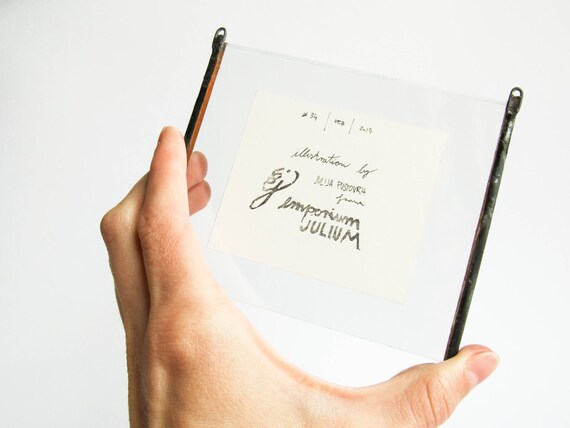 # 34 | FEB | 2013
illustration by
JULIJA POSTOVRH
from
EJ emporium
JULIUM